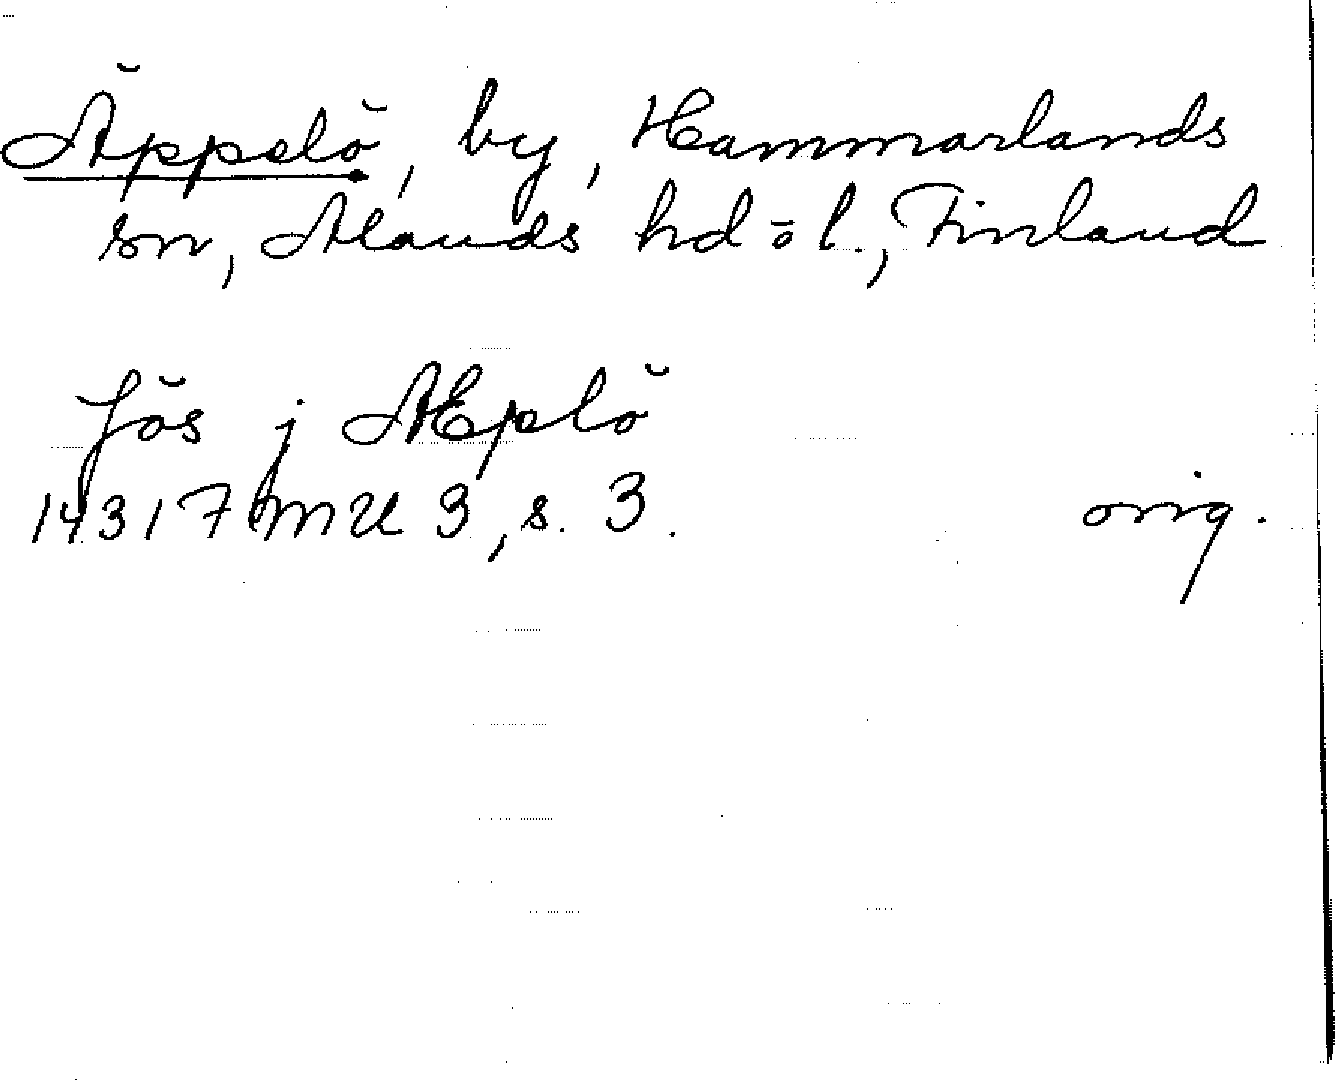 Äppelö, by, Hammarlands
sn, Ålands hd o l., Finland
Jös j Æplö
14317 MU 3, s. 3. orig.